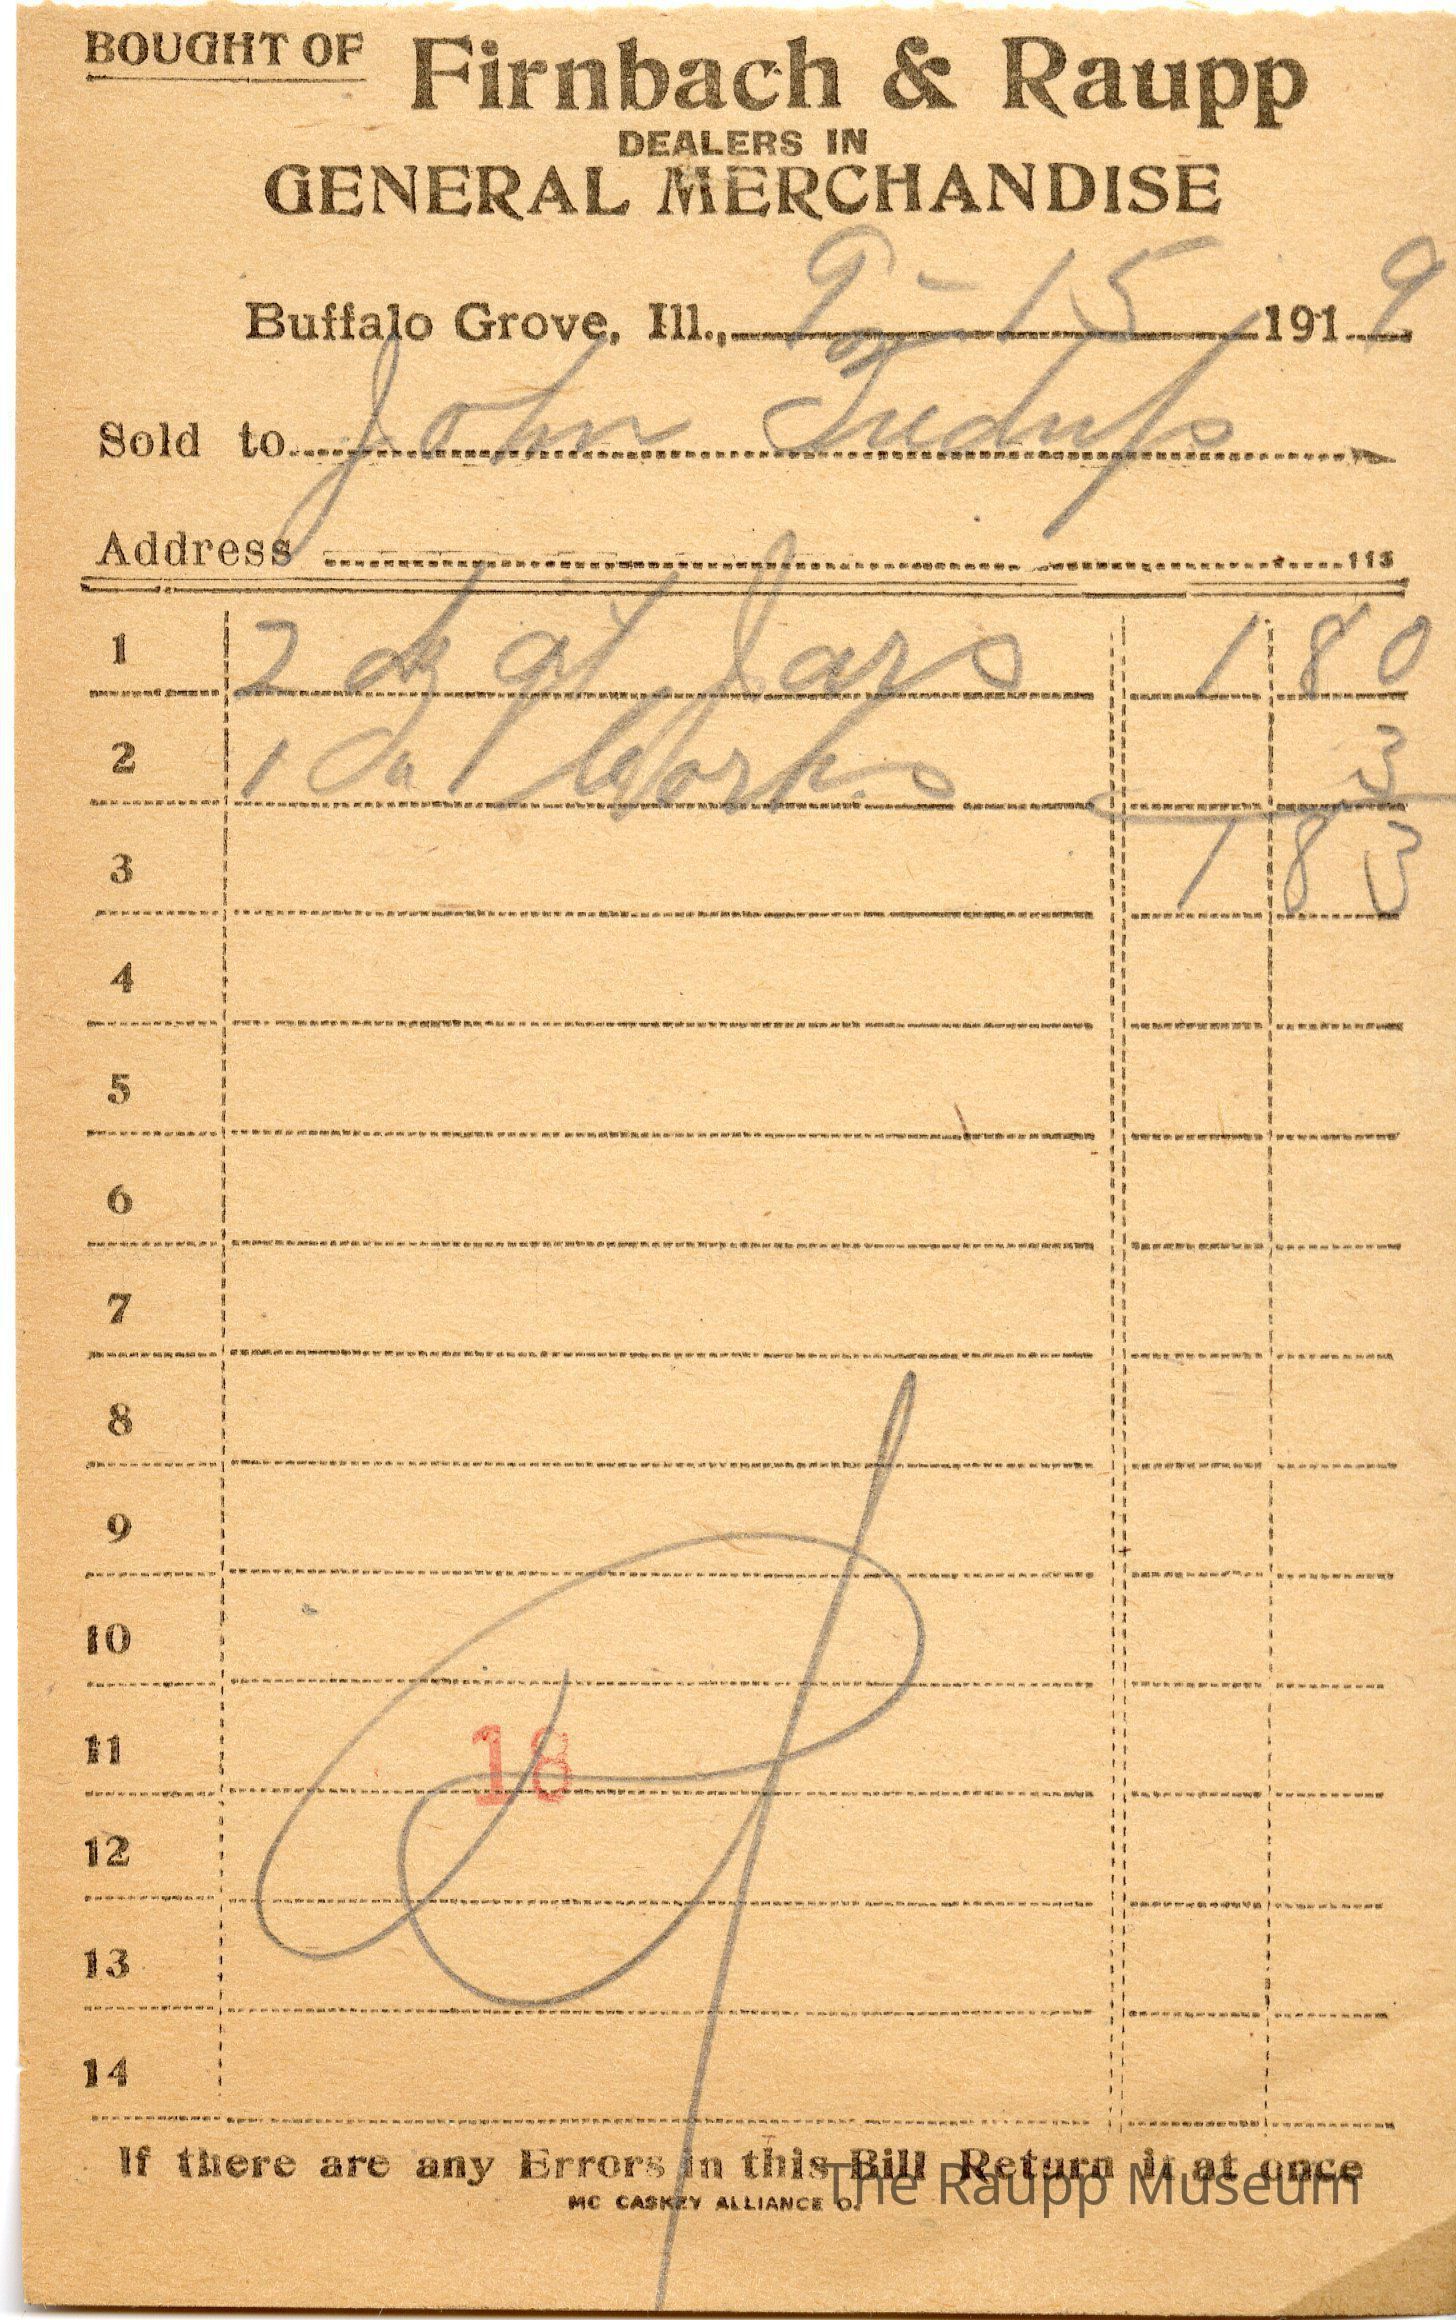 BOUGHT OF Firnbach & Raupp
DEALERS IN
GENERAL MERCHANDISE
Buffalo Grove, Ill., 9-15 1919
Sold to John
Address 113
1 2 dz qt Jars 1 80
2 1 3
3 1 83
4
5
6
7
8
9
10
11 18
12
13
14
If there are any Errors in this Bill Return it at once
MC CASKEY ALLIANCE O.
The Raupp Museum